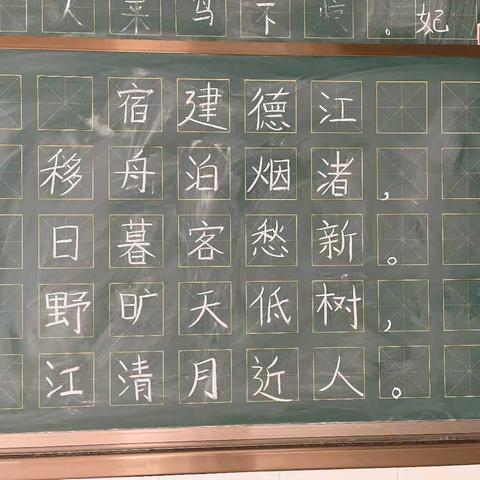 人 采 鸟 不 惊 。妃
宿建德江
移舟泊烟渚，
日暮客愁新。
野旷天低树，
江清月近人。